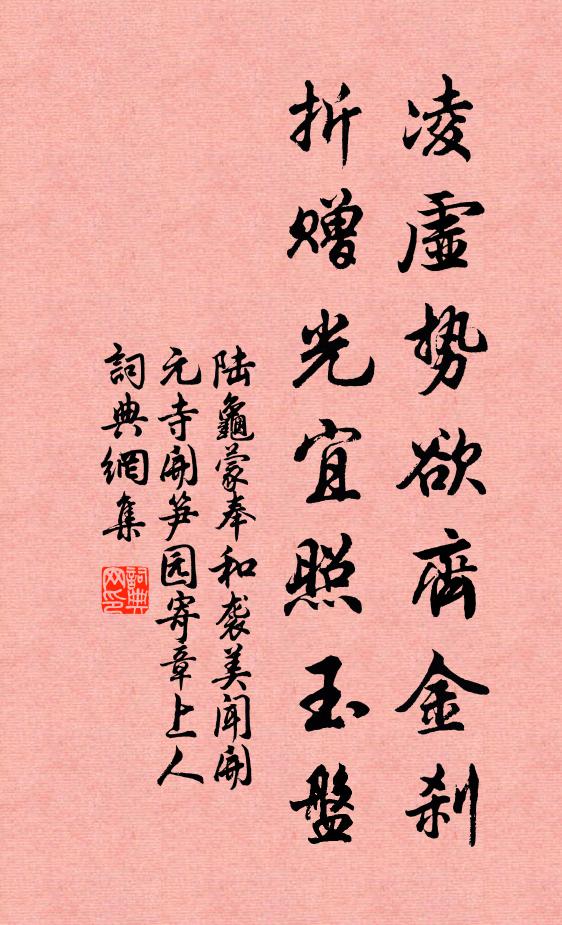 凌虛势欲齊金刹
折赠光宜照玉盤
陆龜蒙奉和袭美闻開
元寺開笋园寄章上人
詞典網集
詞典网印